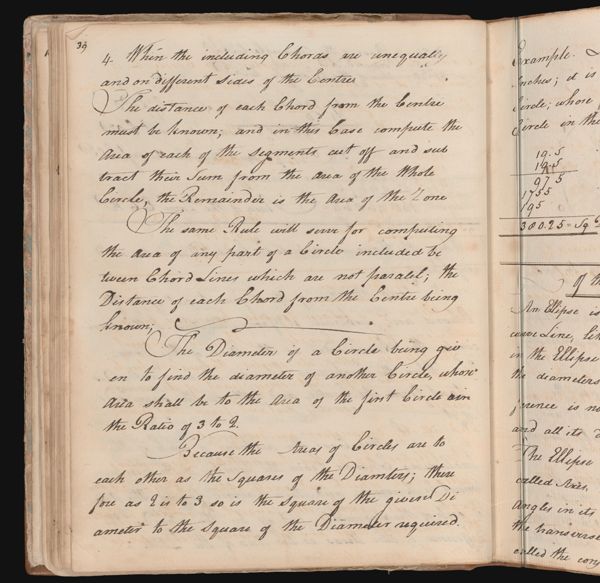 39
4. When the including Chords are unequally
and on different sides of the Centre
The distance of each Chord from the Centre
must be known; and in this Case compute the
Area of each of the Segments cut off and sub
tract their Sum from the area of the Whole
Circle, the Remainder is the Area of the Zone
The same Rule will serve for computing
the area of any part of a Circle included be
tween Chord Lines which are not paralel; the
Distance of each Chord from the Centre being
known;
The Diameter of a Circle being giv
en to find the diameter of another Circle, whose
Area shall be to the Area of the first Circle in
the Ratio of 3 to 2.
Because the Areas of Circles are to
each other as the Squares of the Diamters; there
fore as 2 is to 3 so is the Square of the given Di
ameter to the Square of the Diameter required.
Example.
Inches; it is
Circle; whose
Circle in the
19.5
19.5
975
1755
195
380.25 = Sq
of th
An Ellipse is
curve Line,
in the Ellipse
the diameters
ference is no
and all its
The Ellipse
called Axes.
Angles in its
the transverse
called the con